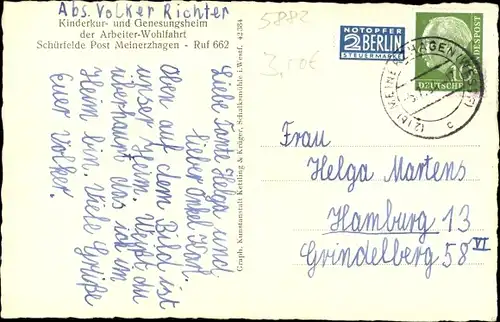 Abs. Volker Richter
Kinderkur- und Genesungsheim
der Arbeiter-Wohlfahrt
Schürfelde Post Meinerzhagen - Ruf 662
5882
3,10€
Liebe Tante Helga und
lieber Onkel Karl.
Oben auf dem Bild ist
unser Heim. Wißt du
überhaupt das ich im
Heim bin. Viele Grüße
Euer Volker.
Graph. Kunstanstalt Kettling & Krüger, Schalksmühle i. Westf. 42 354
NOTOPFER
2 BERLIN
STEUERMARKE
DEUTSCHE BUNDESPOST
10
(21b) MEINERZHAGEN (WESTF)
c
Frau
Helga Martens
Hamburg 13
Grindelberg 58 VI